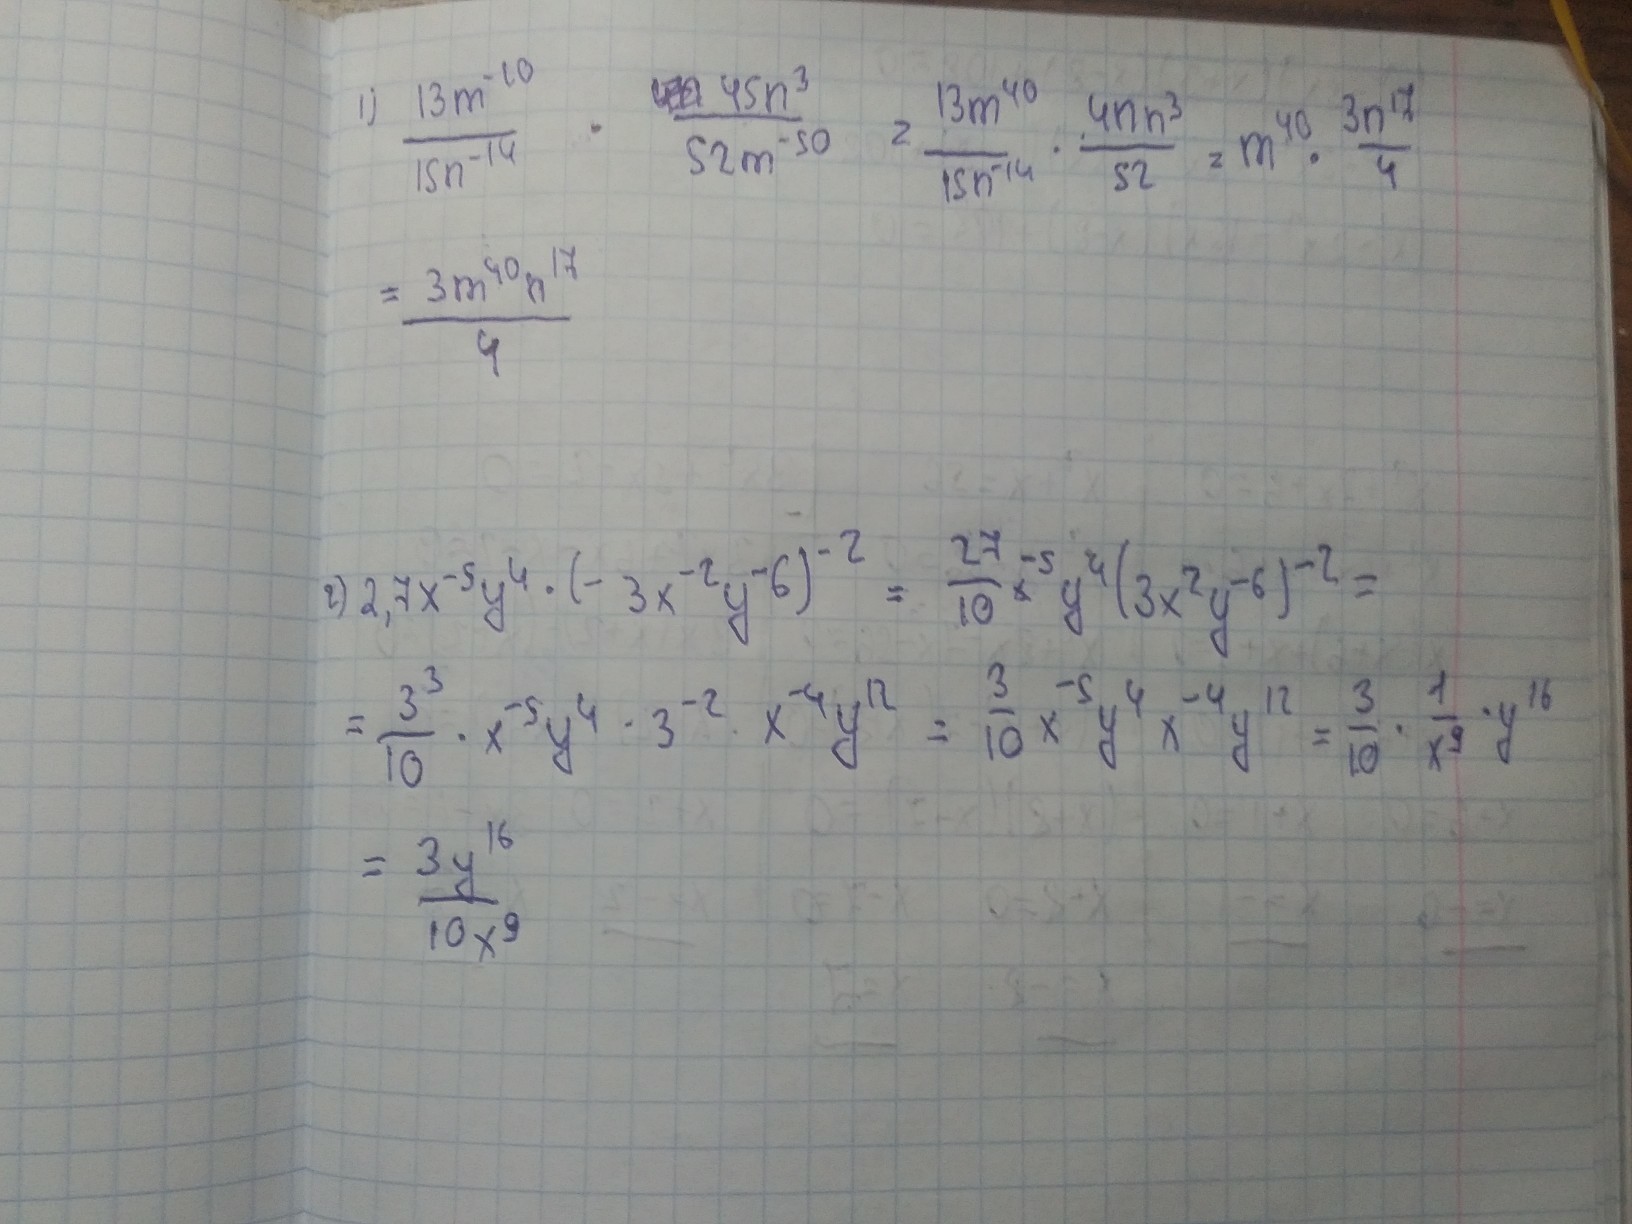 1) 13m^-10/15n^-14 · 45n^3/52m^-50 = 13m^40/15n^-14 · 4nn^3/52 = m^40 · 3n^17/4
= 3m^40n^17/4
2) 2,7x^-5y^4 · (-3x^-2y^-6)^-2 = 27/10 x^-5y^4(3x^2y^-6)^-2 =
= 3^3/10 · x^-5y^4 · 3^-2 · x^-4y^12 = 3/10 x^-5y^4x^-4y^12 = 3/10 · 1/x^9 · y^16
= 3y^16/10x^9